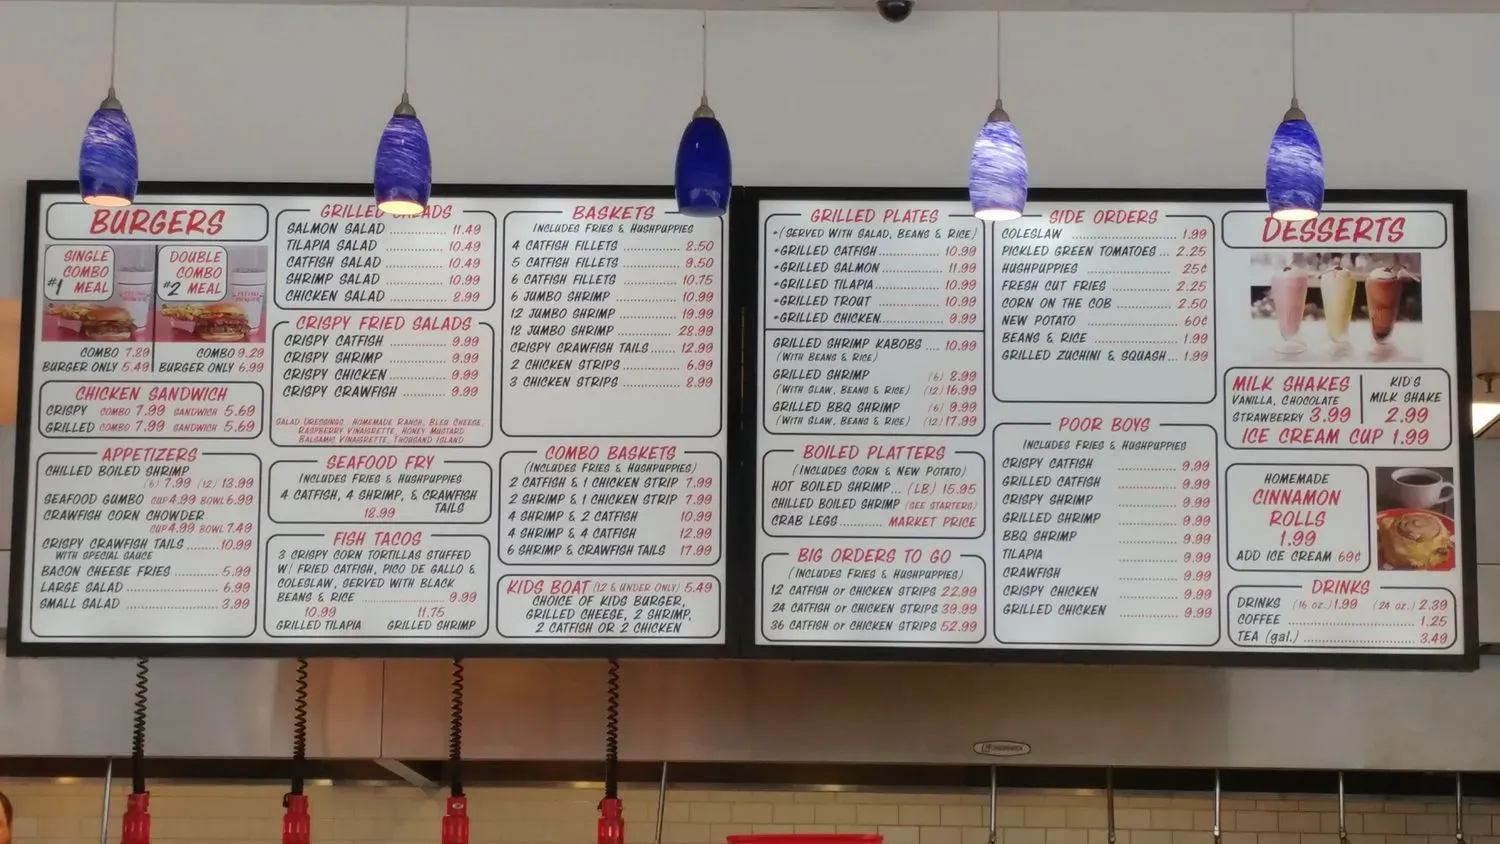 BURGERS
SINGLE
COMBO
#1 MEAL
DOUBLE
COMBO
#2 MEAL
COMBO 7.29
BURGER ONLY 5.49
COMBO 9.29
BURGER ONLY 6.99
CHICKEN SANDWICH
CRISPY COMBO 7.99 SANDWICH 5.69
GRILLED COMBO 7.99 SANDWICH 5.69
APPETIZERS
CHILLED BOILED SHRIMP
(6) 7.99 (12) 13.99
SEAFOOD GUMBO CUP 4.99 BOWL 6.99
CRAWFISH CORN CHOWDER
CUP 4.99 BOWL 7.49
CRISPY CRAWFISH TAILS ........ 10.99
WITH SPECIAL SAUCE
BACON CHEESE FRIES ............ 5.99
LARGE SALAD ................... 6.99
SMALL SALAD ................... 3.99
GRILLED SALADS
SALMON SALAD .............. 11.49
TILAPIA SALAD ............. 10.49
CATFISH SALAD ............. 10.49
SHRIMP SALAD .............. 10.99
CHICKEN SALAD ............. 8.99
CRISPY FRIED SALADS
CRISPY CATFISH ............ 9.99
CRISPY SHRIMP ............. 9.99
CRISPY CHICKEN ............ 9.99
CRISPY CRAWFISH ........... 9.99
SALAD DRESSINGS: HOMEMADE RANCH, BLEU CHEESE,
RASPBERRY VINAIGRETTE, HONEY MUSTARD
BALSAMIC VINAIGRETTE, THOUSAND ISLAND
SEAFOOD FRY
INCLUDES FRIES & HUSHPUPPIES
4 CATFISH, 4 SHRIMP, & CRAWFISH
TAILS
18.99
FISH TACOS
3 CRISPY CORN TORTILLAS STUFFED
W/ FRIED CATFISH, PICO DE GALLO &
COLESLAW, SERVED WITH BLACK
BEANS & RICE .............. 9.99
10.99 11.75
GRILLED TILAPIA GRILLED SHRIMP
BASKETS
INCLUDES FRIES & HUSHPUPPIES
4 CATFISH FILLETS ......... 8.50
5 CATFISH FILLETS ......... 9.50
6 CATFISH FILLETS ......... 10.75
6 JUMBO SHRIMP ............ 10.99
12 JUMBO SHRIMP ........... 19.99
18 JUMBO SHRIMP ........... 28.99
CRISPY CRAWFISH TAILS ...... 12.99
2 CHICKEN STRIPS .......... 6.99
3 CHICKEN STRIPS .......... 8.99
COMBO BASKETS
(INCLUDES FRIES & HUSHPUPPIES)
2 CATFISH & 1 CHICKEN STRIP 7.99
2 SHRIMP & 1 CHICKEN STRIP 7.99
4 SHRIMP & 2 CATFISH 10.99
4 SHRIMP & 4 CATFISH 12.99
6 SHRIMP & CRAWFISH TAILS 17.99
KIDS BOAT (12 & UNDER ONLY) 5.49
CHOICE OF KIDS BURGER,
GRILLED CHEESE, 2 SHRIMP,
2 CATFISH OR 2 CHICKEN
GRILLED PLATES
*(SERVED WITH SALAD, BEANS & RICE)
*GRILLED CATFISH ........... 10.99
*GRILLED SALMON ............ 11.99
*GRILLED TILAPIA ........... 10.99
*GRILLED TROUT ............. 10.99
*GRILLED CHICKEN ........... 9.99
GRILLED SHRIMP KABOBS .... 10.99
(WITH BEANS & RICE)
GRILLED SHRIMP (6) 8.99
(WITH SLAW, BEANS & RICE) (12) 16.99
GRILLED BBQ SHRIMP (6) 9.99
(WITH SLAW, BEANS & RICE) (12) 17.99
BOILED PLATTERS
(INCLUDES CORN & NEW POTATO)
HOT BOILED SHRIMP... (LB) 15.95
CHILLED BOILED SHRIMP (SEE STARTERS)
CRAB LEGS ......... MARKET PRICE
BIG ORDERS TO GO
(INCLUDES FRIES & HUSHPUPPIES)
12 CATFISH or CHICKEN STRIPS 22.99
24 CATFISH or CHICKEN STRIPS 39.99
36 CATFISH or CHICKEN STRIPS 52.99
SIDE ORDERS
COLESLAW .................. 1.99
PICKLED GREEN TOMATOES ... 2.25
HUSHPUPPIES ............... 25¢
FRESH CUT FRIES ........... 2.25
CORN ON THE COB ........... 2.50
NEW POTATO ................ 60¢
BEANS & RICE .............. 1.99
GRILLED ZUCHINI & SQUASH... 1.99
POOR BOYS
INCLUDES FRIES & HUSHPUPPIES
CRISPY CATFISH ............ 9.99
GRILLED CATFISH ........... 9.99
CRISPY SHRIMP ............. 9.99
GRILLED SHRIMP ............ 9.99
BBQ SHRIMP ................ 9.99
TILAPIA ................... 9.99
CRAWFISH .................. 9.99
CRISPY CHICKEN ............ 9.99
GRILLED CHICKEN ........... 9.99
DESSERTS
MILK SHAKES
VANILLA, CHOCOLATE
STRAWBERRY 3.99
KID'S
MILK SHAKE
2.99
ICE CREAM CUP 1.99
HOMEMADE
CINNAMON
ROLLS
1.99
ADD ICE CREAM 69¢
DRINKS
DRINKS (16 oz.) 1.99 (24 oz.) 2.39
COFFEE .................... 1.25
TEA (gal.) ................ 3.49